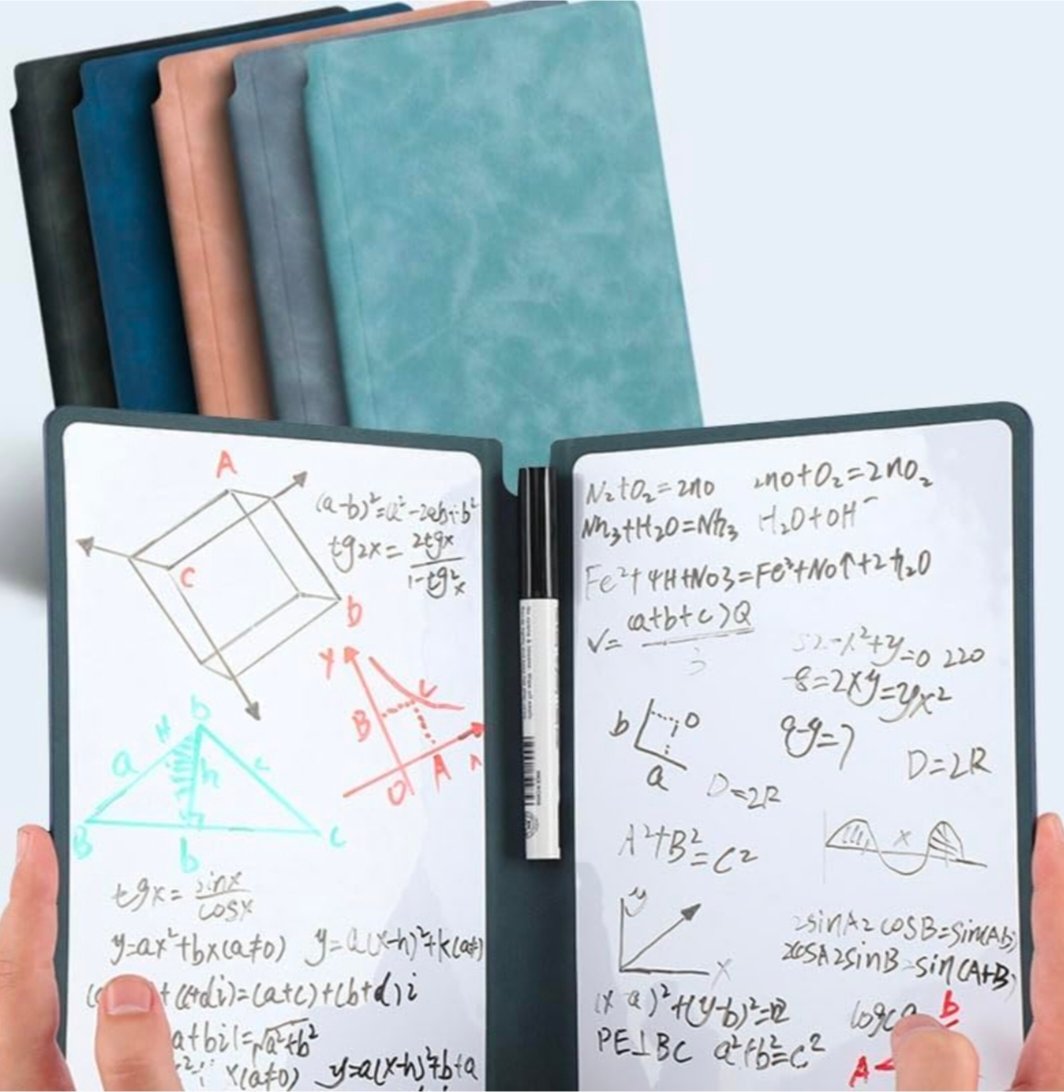 A
(a-b)²=a²-2ab+b²
tg2x=2tgx/1-tg²x
C
b
Y
B
C
A
O
b
H
a
h
c
B
b
C
tgx=sinx/cosx
y=ax²+bx(a≠0) y=a(x-h)²+k(a≠
+(c+di)=(a+c)+(b+d)i
a+bi|=√a²+b²
x(a≠0) y=a(x-h)²+b+a
N₂+O₂=2no 2no+O₂=2nO₂
Nh₃+H₂O=Nh₃ H₂O+OH⁻
Fe²+4H+No3=Fe³+No↑+2h₂O
V=(a+b+c)Q/3
52-x²+y=0 220
-8=2xy=yx²
b
o
a
8-y=7
D=2R
D=2R
A²+B²=C²
x
y
x
2sinA2cosB=sin(Ab)
2cosA2sinB=sin(A+B)
(x-a)²+(y-b)²=
PE⊥BC a²+b²=c²
logca
b
A